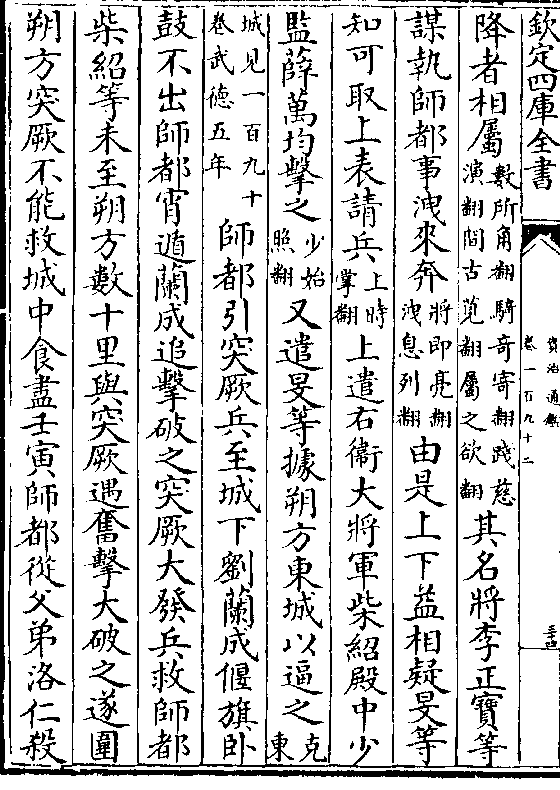 欽定四庫全書
資治通鑑
卷一百九十二
三十四
降者相屬數所角翻騎奇寄翻踐慈演翻間古莧翻屬之欲翻其名將李正寶等
謀執師都事洩來奔將即亮翻洩息列翻由是上下益相疑旻等
知可取上表請兵上時掌翻上遣右衛大將軍柴紹殿中少
監薛萬均擊之少始照翻又遣旻等據朔方東城以逼之克東
城見一百九十卷武德五年師都引突厥兵至城下劉蘭成偃旗卧
鼓不出師都宵遁蘭成追擊破之突厥大發兵救師都
柴紹等未至朔方數十里與突厥遇奮擊大破之遂圍
朔方突厥不能救城中食盡壬寅師都從父弟洛仁殺